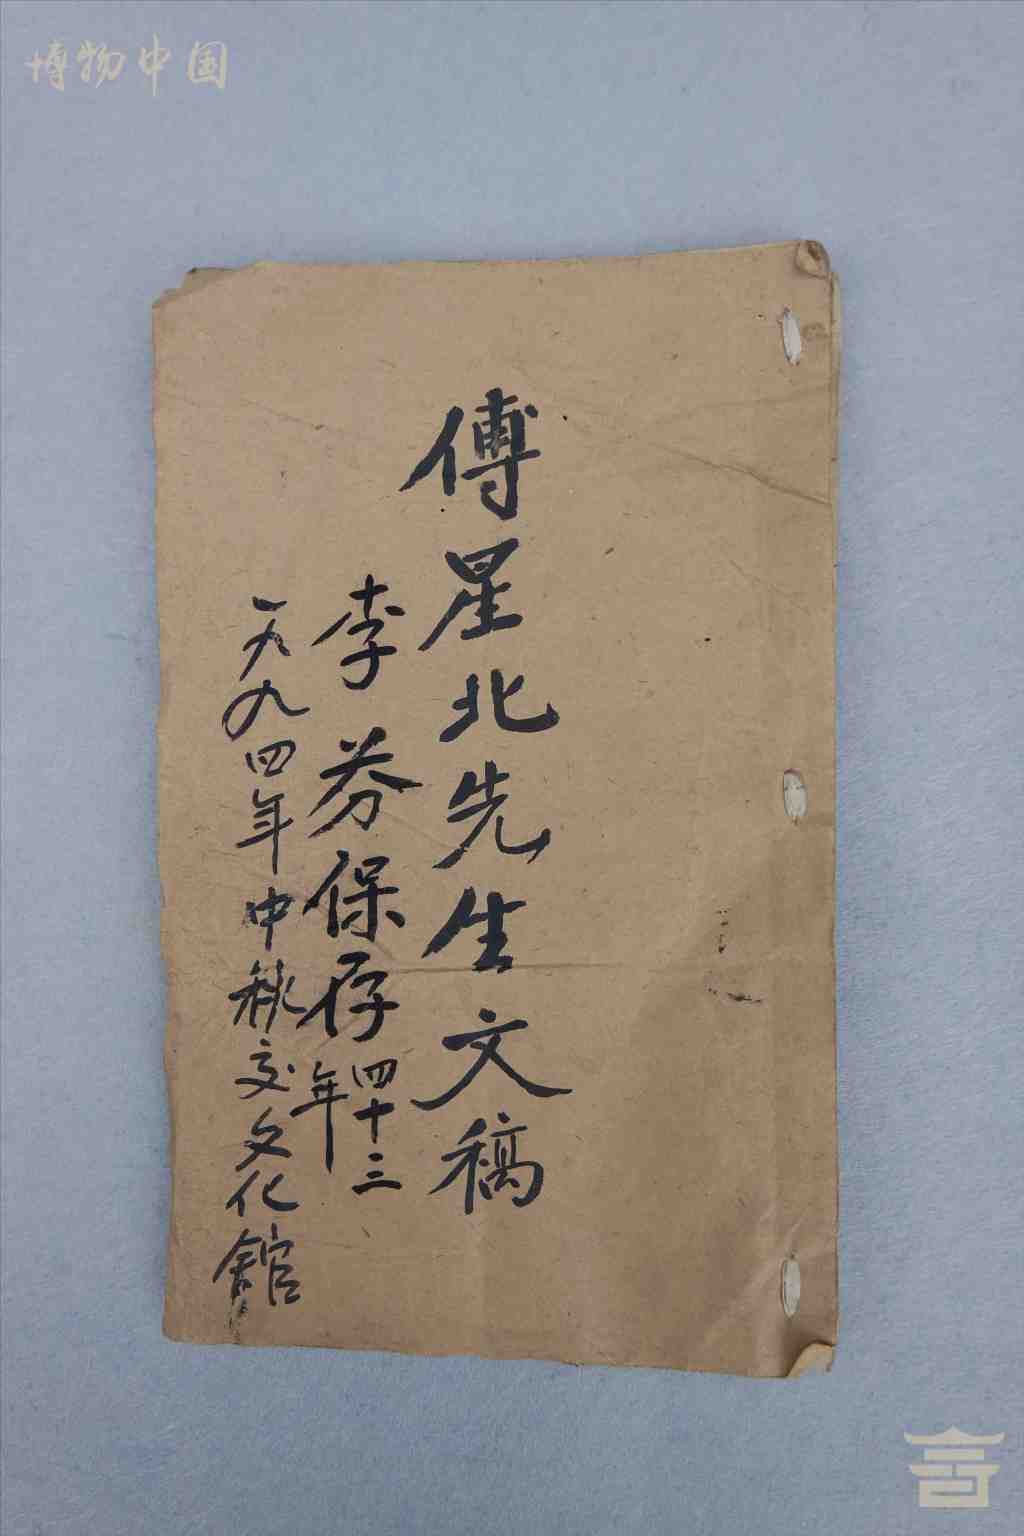 博物中国
傅星北先生文稿
李芬保存四十三年
一九九四年中秋交文化館